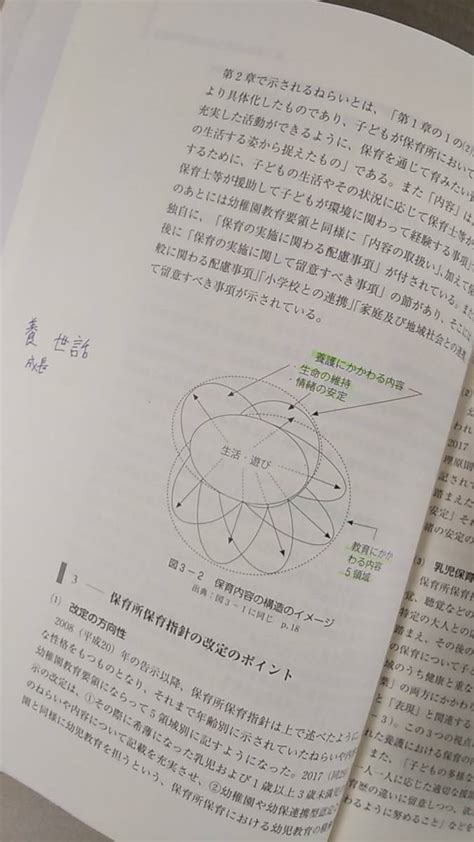 第2章で示されるねらいとは、「第1章の1の(2)
より具体化したものであり、子どもが保育所において
充実した活動ができるように、保育を通じて育みたい
の生活する姿から捉えたもの」である。また「内容」
するために、子どもの生活やその状況に応じて保育士等が
保育士等が援助して子どもが環境に関わって経験する事項
のあとには幼稚園教育要領と同様に「内容の取扱い」、加えて
独自に、「保育の実施に関わる配慮事項」が付されている。また
後に「保育の実施に関して留意すべき事項」の節があり、そこに
般に関わる配慮事項」「小学校との連携」「家庭及び地域社会との連携
て留意すべき事項が示されている。
養 世話
成長
養護にかかわる内容
・生命の維持
・情緒の安定
生活・遊び
教育にか
かわる内容
5領域
図3-2 保育内容の構造のイメージ
出典：図3-1に同じ p.18
3 保育所保育指針の改定のポイント
(1) 改定の方向性
2008（平成20）年の告示以降、保育所保育指針は上で述べたように
な性格をもつものとなり、それまで年齢別に示されていたねらいや内容
幼稚園教育要領にならって5領域別に記すようになった。2017（同29）
示の改定は、①その際に希薄になった乳児および1歳以上3歳未満児
のねらいや内容について記載を充実させ、②幼稚園や幼保連携型認定
園と同様に幼児教育を担うという、保育所保育における幼児教育の積極
(2)
われ
2017
理原則
記され
踏まえた
安定」それ
緒の安定の
(3) 乳児保育
保育所保育指
覚、聴覚などの
特定の大人との
踏まえ、その後の
の保育について
域のうち健康と重な
の両方にかかわ
と「表現」と関連する
-3）。この3つの視
れた養護における保育の
また、「子どもの多様
一人一人に応じた適切な援
育歴の違いに留意しつつ、欲
わるように努めること」などを